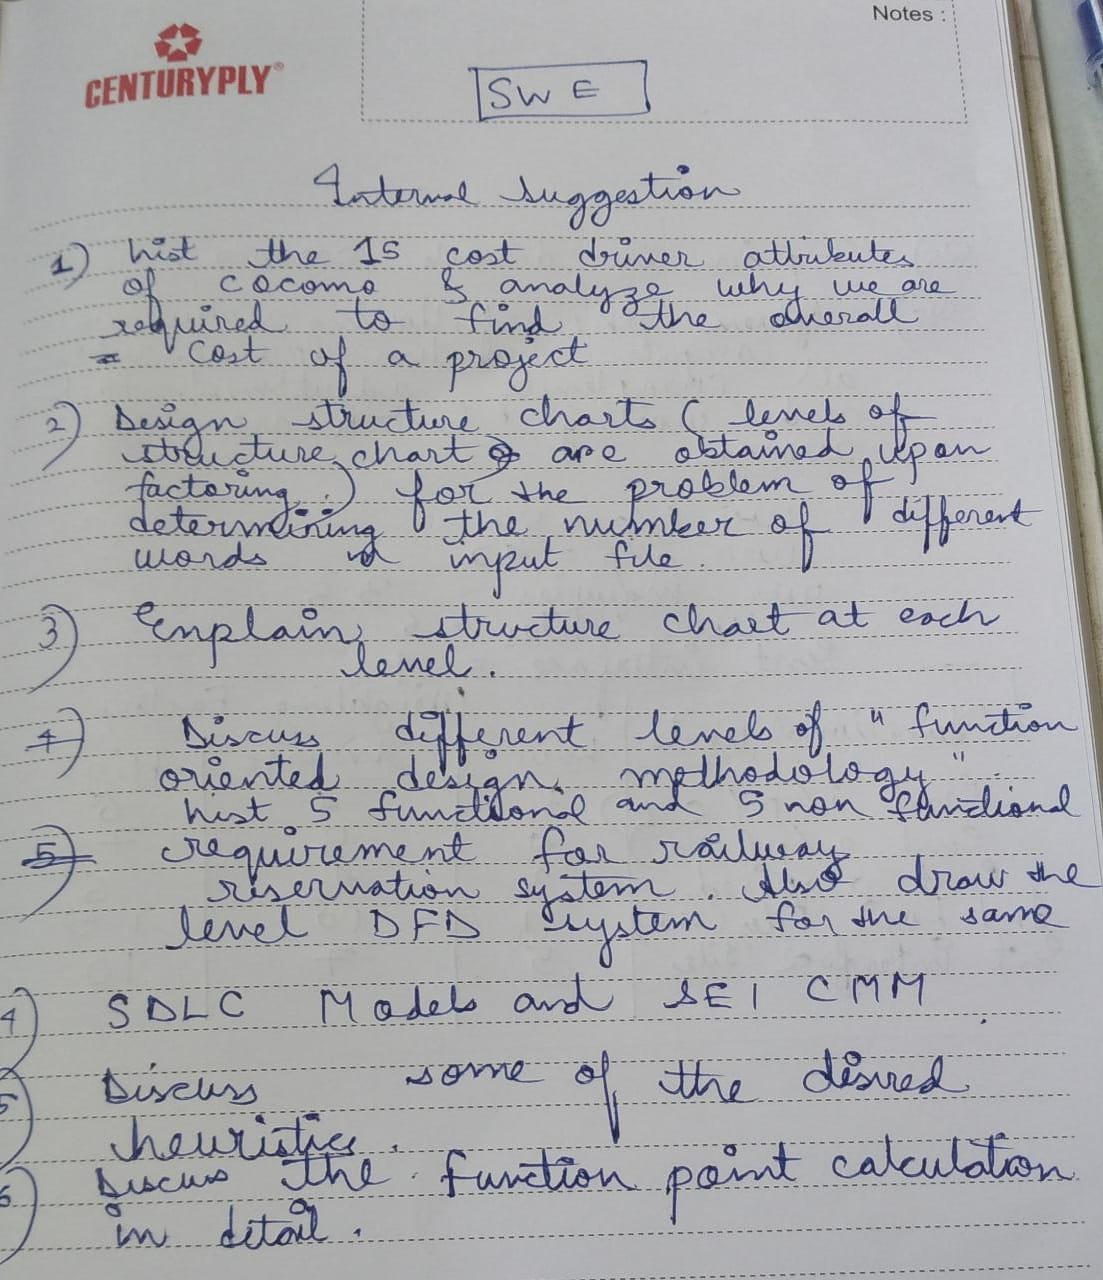 Notes :
CENTURYPLY®
SWE
Internal Suggestion
1) List the 15 cost driver attributes
of cocomo & analyze why we are
required to find the overall
= cost of a project
2) Design structure charts ( levels of
structure chart are obtained upon
factoring.) for the problem of
determining the number of different
words in input file.
3) Explain structure chart at each
level.
4) Discuss different levels of "function
oriented design methodology"
List 5 functional and 5 non functional
5) requirement for railway
riservation system. Also draw the
level DFD system for the same
4) SDLC Models and SEI CMM
5) Discuss some of the disired
heuristics.
6) Discuss the function point calculation
in detail.